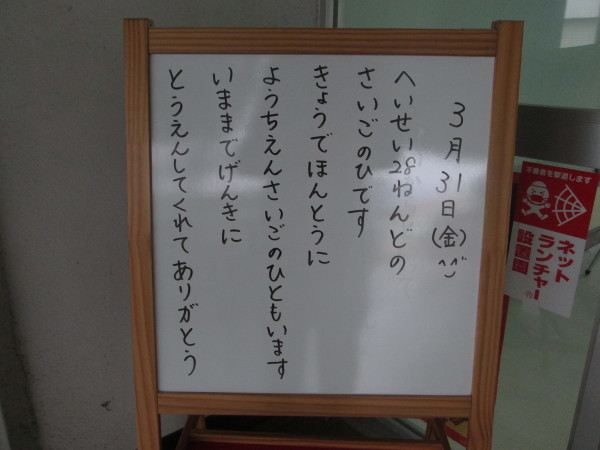 3月31日(金)^^
へいせい28ねんどの
さいごのひです
きょうでほんとうに
ようちえんさいごのひともいます
いままでげんきに
とうえんしてくれてありがとう
不審者を撃退します
ネット
ランチャー
設置園